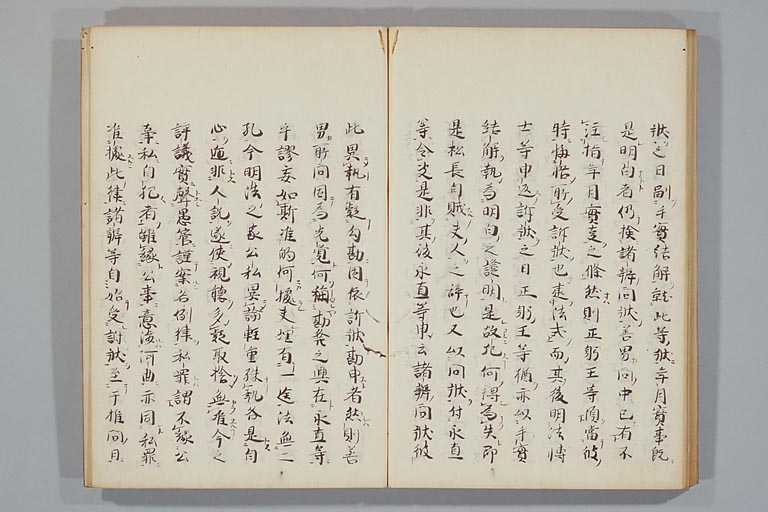 状之日副手實結解就此等状年月實事既
是明白者仍換諸辨问状善男问中已有不
注指年月實違之條然則正躬王等須當彼
時悔悟所受訴状也違法式而其後明法博
士等申返訴状之日正躬王等猶亦以手實
結解執為明白之證明是故犯何得為失即
是松長自賊夫人之辞也又以问状付永直
等令決是非其後永直等申云諸辨问状彼
此異執有疑勾勘因依訴状勘申者然則善
男所问因為先寛何稱勘發之輿在永直等
乎謬妄如斯准的何據夫理有一途法無二
孔今明法之家公私異論軽重殊執各是自
心逈非人説遂使視聴多疑取捨無准今之
評議實聲愚管謹案名例律私罪謂不縁公
事私自犯者雖縁公事意渉阿曲亦同私罪
准據此律諸辨等自始受訴状至于推问月